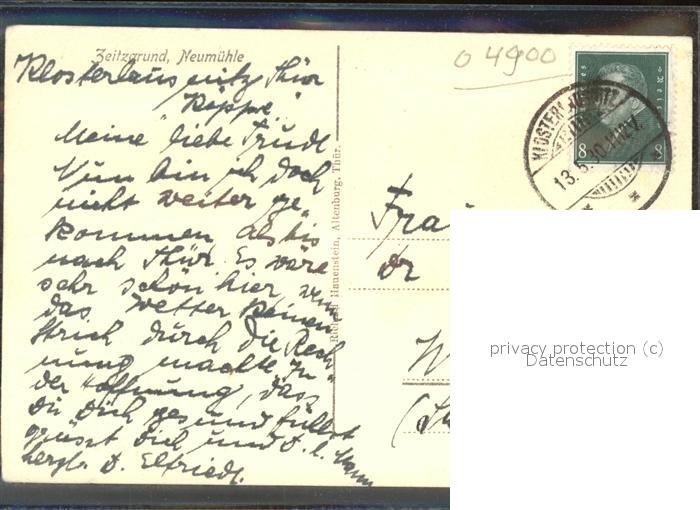 Zeitzgrund, Neumühle
Klosterlausnitz Thür
"Köppe"
Meine liebe Trudl
Nun bin ich doch
nicht weiter ge-
kommen als bis
nach Thür. Es wäre
sehr schön hier, wenn
das Wetter keinen
Strich durch die Rech
nung machte. In
der Hoffnung, dass
Du Dich gesund fühlst
grüsst Dich und D. l. Mann
herzl. D. Elfriede.
Hauenstein, Altenburg, Thür.
04900
8 8
13.5.30.
Frau
Dr
W
privacy protection (c)
Datenschutz